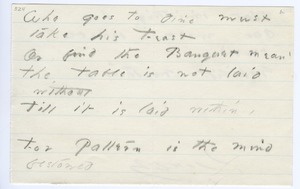 Who goes to dine must
take his Feast
Or find the Banquet mean
The Table is not laid
without
Till it is laid within.
For Pattern is the mind
bestowed